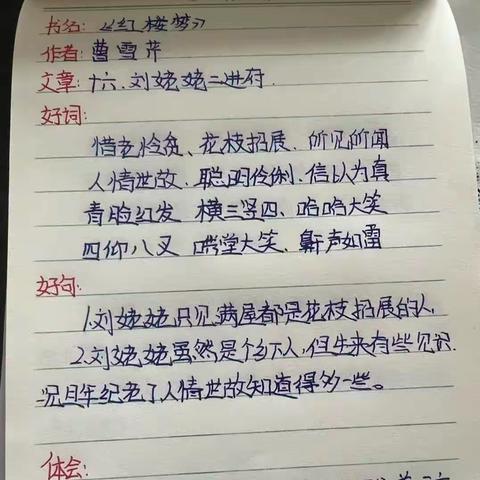 书名:《红楼梦》
作者:曹雪芹
文章:十六.刘姥姥二进府.
好词:
惜老怜贫、花枝招展、所见所闻
人情世故、聪明伶俐、信以为真
青脸红发 横三竖四、哈哈大笑
四仰八叉 哄堂大笑、鼾声如雷
好句:
1.刘姥姥只见满屋都是花枝招展的人,
2.刘姥姥虽然是个乡下人,但生来有些见识.
况且年纪老了,人情世故知道得多一些。
体会: